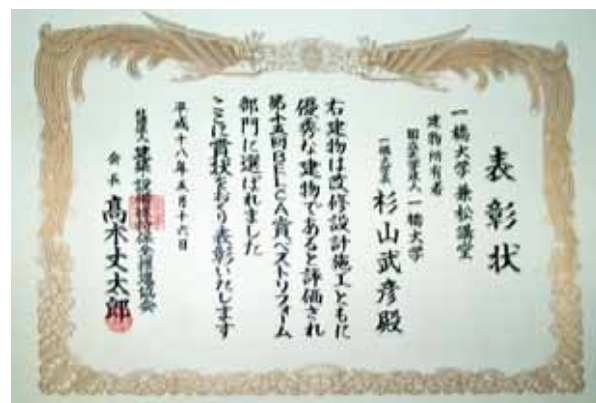 表彰状
一橋大学兼松講堂
建物所有者
国立大学法人 一橋大学
一橋大学長 杉山武彦殿
右建物は改修設計施工ともに
優秀な建物であると評価され
第十五回BELCA賞ベストリフォーム
部門に選ばれました
ここに賞状をおくり表彰いたします
平成十八年五月十六日
社団法人 建築・設備維持保全推進協会
会長 髙木丈太郎